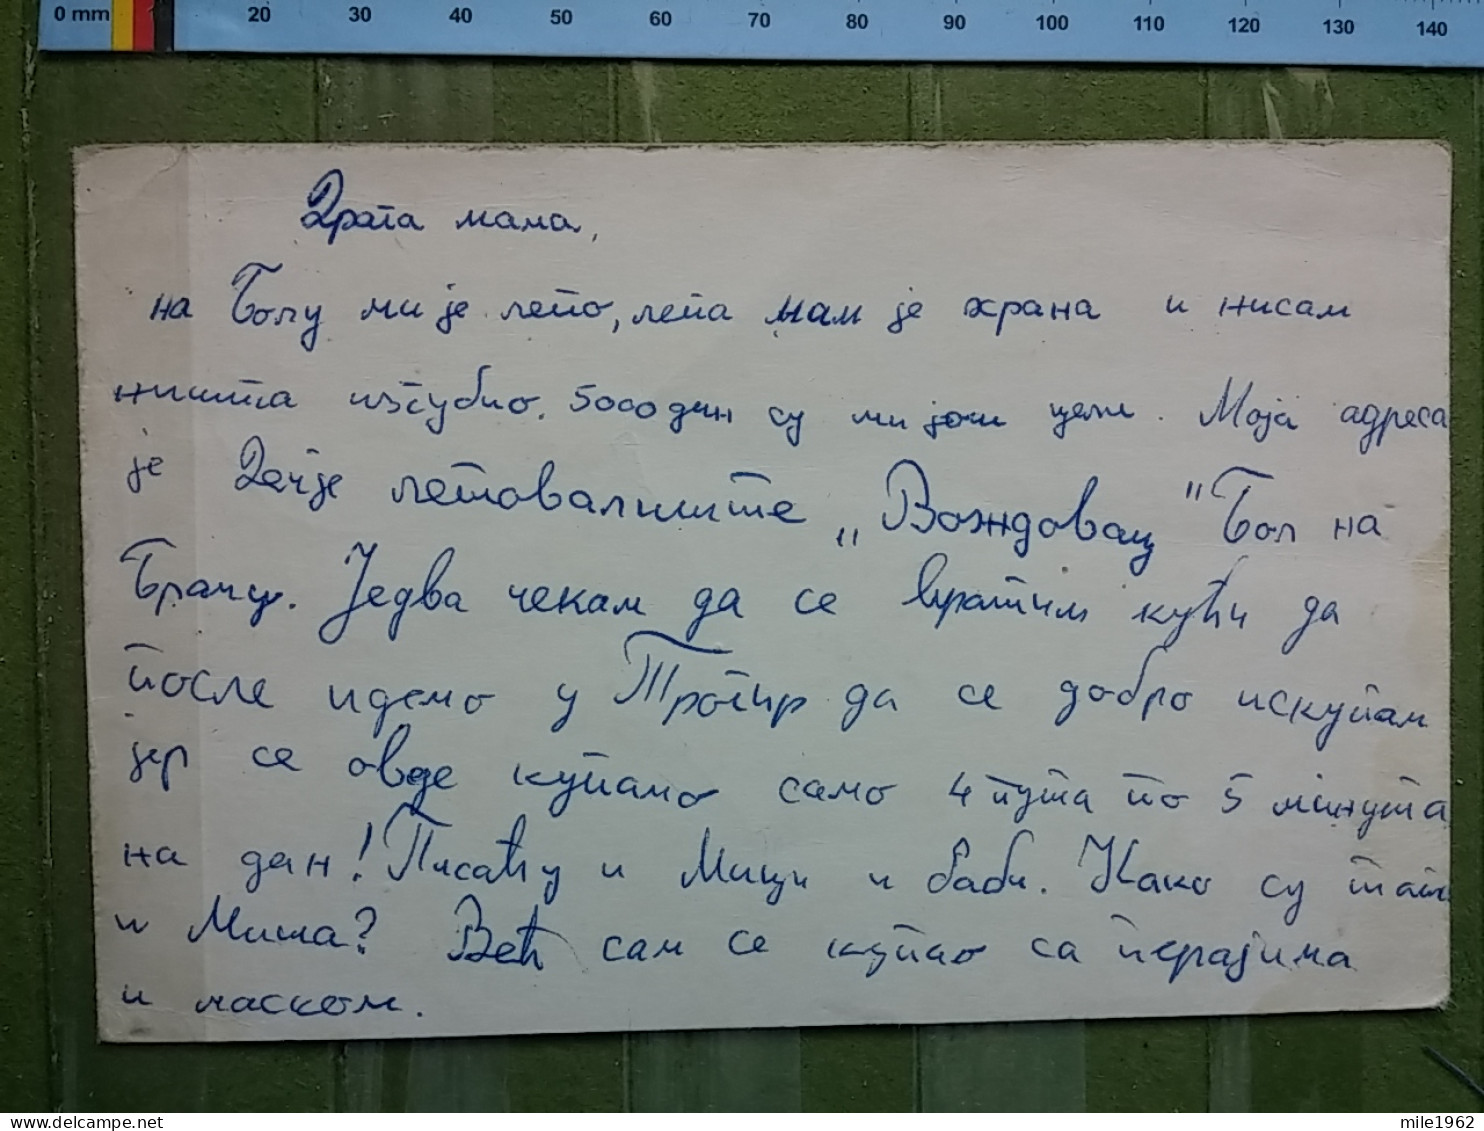 0 mm 20 30 40 50 60 70 80 90 100 110 120 130 140
Драга мама,
на Болу ми је лепо, лепа нам је храна и нисам
ништа изгубио. 5000 дин су ми још целе. Моја адреса
је Дечје летовалиште „Вождовац" Бол на
Брачу. Једва чекам да се вратим кући да
после идемо у Трогир да се добро искупам
јер се овде купамо само 4 пута по 5 минута
на дан! Писаћу и Мици и баби. Како су тата
и Миша? Већ сам се купао са перајима
и маском.
mile1962